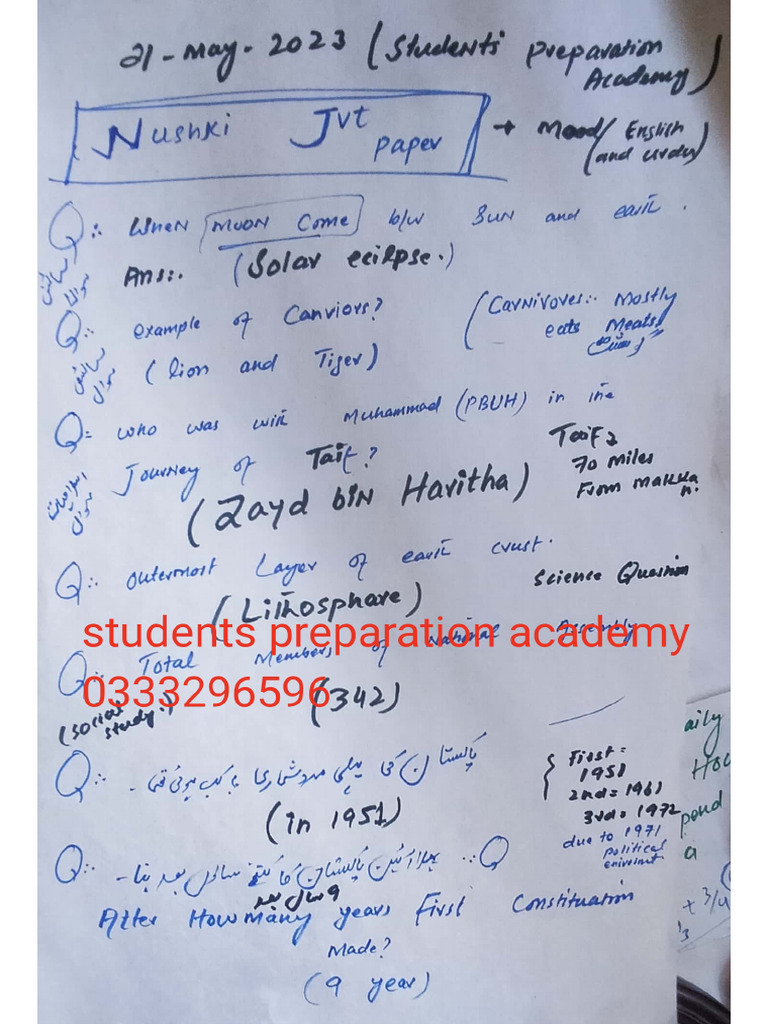 21-May-2023 (Students' preparation Academy)
Nushki Jvt paper → Mood/ English (and urdu)
Q:. When Moon Come b/w Sun and earth.
سائنس سوال
Ans:. (Solar ecilpse.)
Q:. example of Canviors? (Carnivores:. Mostly eats Meats "گوشت"
سائنس سوال
(lion and Tiger)
Q: who was with Muhammad (PBUH) in the
Journey of Taif?
اسلامیات سوال
Taif 70 miles From makka
(Zayd bin Haritha)
Q:. outermost Layer of earth crust.
(Lithosphare) Science Question
students preparation academy
Q:. Total Members of National Assembly
0333296596
(342)
(social study.)
Q:. پاکستان کی پہلی مردشماری کب ہوئی تھی -
(in 1951)
{ First = 1951
2nd = 1961
3rd = 1972
due to 1971
political
enirimnt
Q:. پہلا آئین پاکستان کا کتنے سال بعد بنا - :. Q
9 سال بعد
After How many years First Constituation
Made?
(9 year)
aily
How
pend
a
+ 3/4
1/3